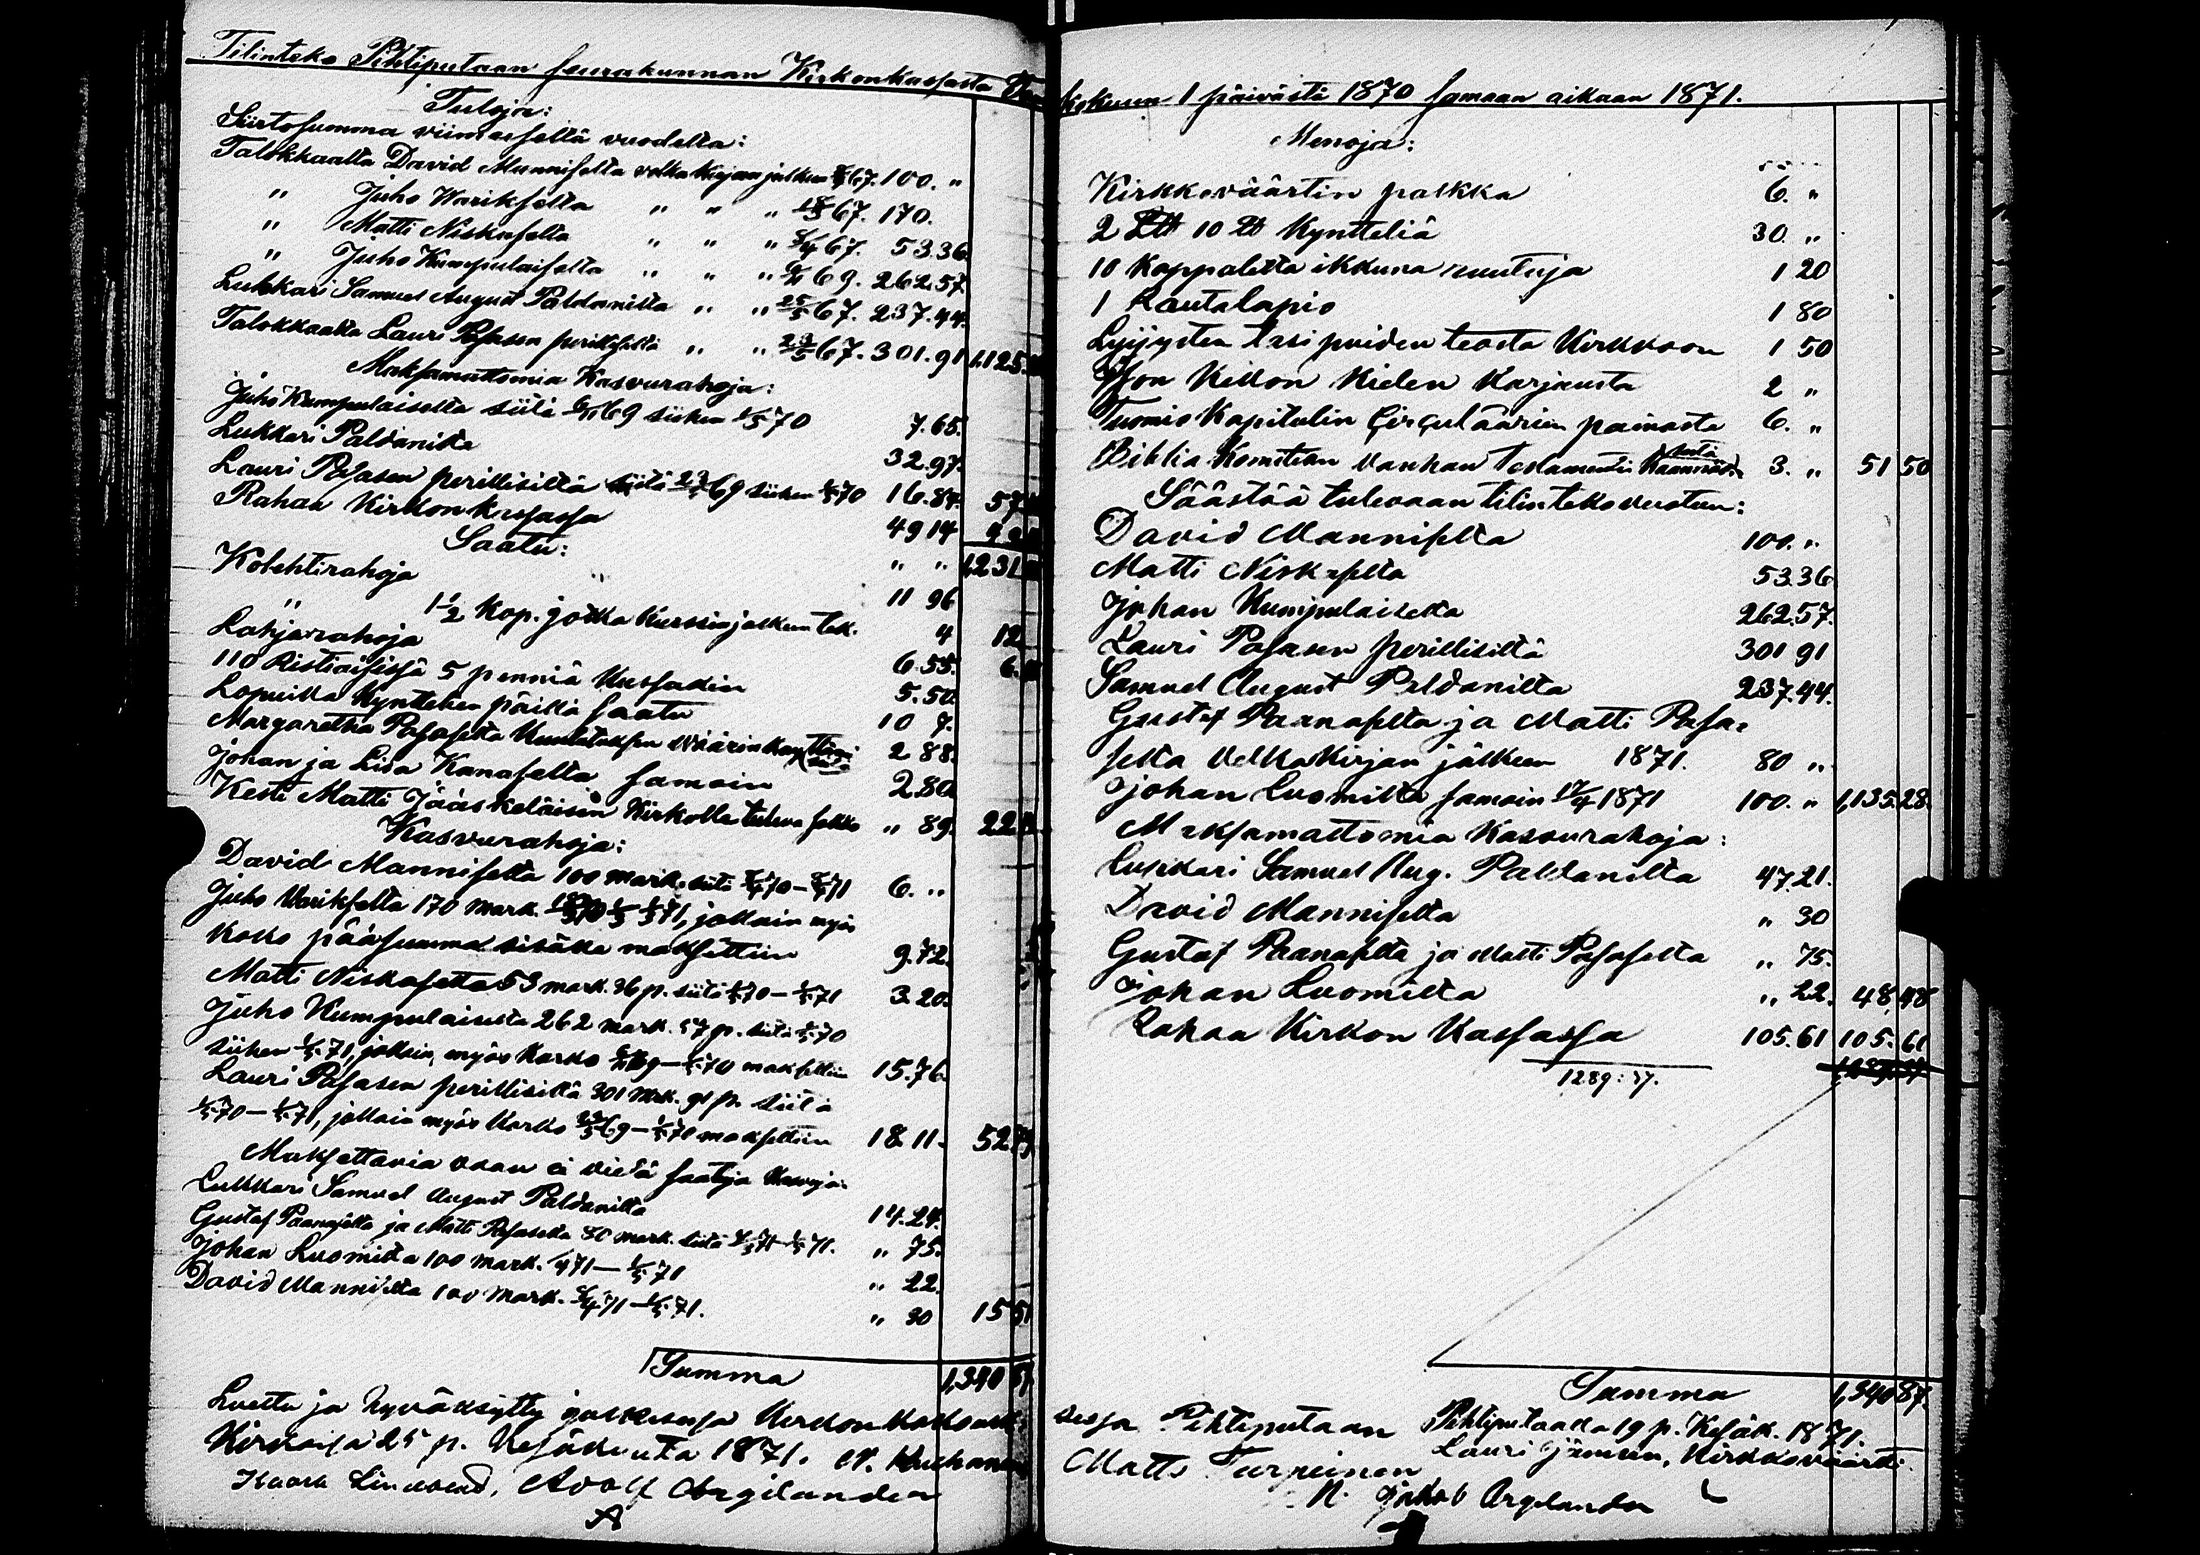 Tilinteko Pihtiputaan seurakunnan Kirkonkassasta
Tuloja:
Siirtosumma viimeiseltä vuodelta:
Talokkaalta David Manniselta velkakirjan jälkeen 67. 100. "
" Juho Warikselta " " " 67. 170.
" Matti Niskaselta " " " 67. 53.36.
" Juho Kumpulaiselta " " " 69. 262.57.
Lukkari Samuel August Paldanilta " " 25/5 67. 237.44.
Talokkaalta Lauri Pasasen perillisiltä " " 23/5 67. 301.91 1,125.
Maksamattomia Kasvurahoja:
Juho Kumpulaiselta siitä 69 siihen 1/5 70 7.65.
Lukkari Paldanilta 32.97.
Lauri Pasasen perillisiltä siitä 23/5 69 siihen 1/5 70 16.84. 57
Rahaa Kirkonkassassa 49 14
Saatu: " " 1,231
Kolehtirahoja 11 96
" 1 1/2 kop. jotka kurssin jälkeen tek. 4 12
Lahjarahoja 6.55. 6.
110 Ristiäisissä 5 penniä Kassahan 5.50.
Lopuilta Kynttelien päiltä saatu 10 7.
Margaretha Pasaselta Kuulutuksen väärinkäyttämisestä 2 88.
Johan ja Lisa Kanaselta samoin 2.80.
Kesti Matti Jääskeläisen Kirkolle tuleva sakko " 89. 22
Kasvurahoja:
David Manniselta 100 mark. siitä 70 – 71 6. "
Juho Warikselta 170 mark. 70 – 71, jolloin myös
koko pääsumma sisälle maksettiin 9.72.
Matti Niskaselta 53 mark. 36 p. siitä 1/5 70 – 1/5 71 3.20.
Juho Kumpulaiselta 262 mark. 57 p. siitä 1/5 70
siihen 1/5 71, jolloin myös korko 69 – 1/5 70 maksettiin 15.76.
Lauri Pasasen perillisiltä 301 mrk. 91 p. siitä
1/5 70 – 1/5 71, jolloin myös korko 23/5 69 – 1/5 70 maksettiin 18.11. 52
Maksettavia vaan ei vielä saatuja kasvuja.
Lukkari Samuel August Paldanilta 14.24.
Gustaf Paanaselta ja Matti Pasaselta 80 mark. siitä 71 – 1/5 71. " 75.
Johan Luomilta 100 mark. 71 – 1/5 71 " 22.
David Manniselta 100 mark. 71 – 1/5 71. " 30 15 51
Summa 1,340 87
Luettu ja hyväksytty julkisessa Kirkonkokouk-
Kirkossa 25 p. Kesäkuuta 1871.
Adolf Argillander
kokuun 1 päivästä 1870 samaan aikaan 1871.
Menoja:
Kirkkoväärtin palkka 6. "
2 10 Kyntteliä 30. "
10 kappaletta ikkuna ruutuja 1 20
1 Rautalapio 1 80
Lyijysten teosta Kirkkoon 1 50
Ison Kellon Kielen Korjausta 2 "
Tuomio Kapitulin Circuläärien painosta 6. "
Biblia Komitean vanhan Testamentin 3. " 51 50
Säästöä tulevaan tilinteko vuoteen:
David Manniselta 100. "
Matti Niskaselta 53.36
Johan Kumpulaiselta 262.57.
Lauri Pasasen perillisiltä 301 91
Samuel August Paldanilta 237.44.
Gustaf Paanaselta ja Matti Pasa-
selta velkakirjan jälkeen 1871. 80 "
Johan Luomilta samoin 17/4 1871 100. " 1,135.28.
Maksamattomia Kasvurahoja:
Lukkari Samuel Aug. Paldanilta 47.21.
David Manniselta " 30
Gustaf Paanaselta ja Matti Pasaselta " 75.
Johan Luomilta " 22. 48,48
Rahaa Kirkon Kassassa 105.61 105.61
1289:37.
Summa 1,340 87.
sessa Pihtiputaan Pihtiputaalla 19 p. Kesäk. 1871.
Matts Turpeinen Lauri Jämsen, Kirkkoväärti.
Jakob Argillander